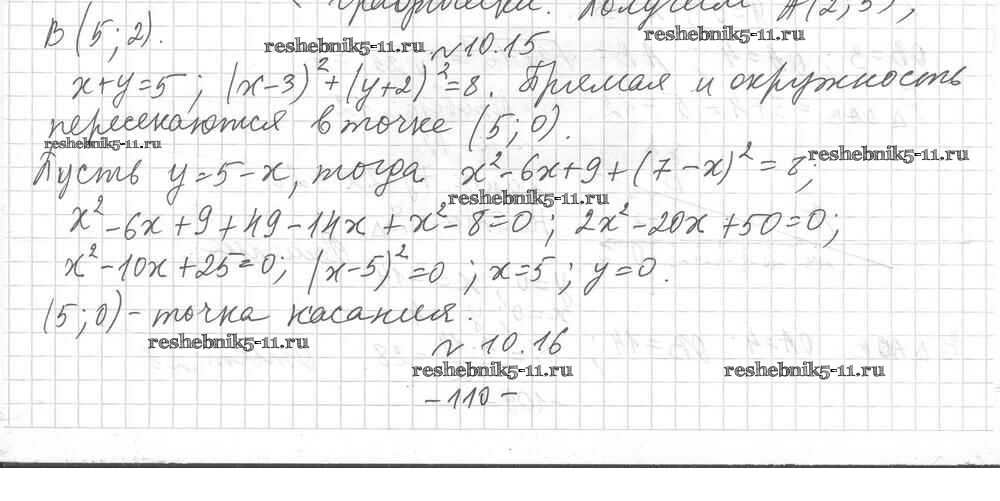 графически. Получим A(2;5),
B(5;2).
reshebnik5-11.ru
reshebnik5-11.ru
№10.15
x+y=5; (x-3)²+(y+2)²=8. Прямая и окружность
пересекаются в точке (5;0).
reshebnik5-11.ru
reshebnik5-11.ru
Пусть y=5-x, тогда x²-6x+9+(7-x)²=8;
reshebnik5-11.ru
x²-6x+9+49-14x+x²-8=0; 2x²-20x+50=0;
x²-10x+25=0; (x-5)²=0; x=5; y=0.
(5;0)-точка касания.
reshebnik5-11.ru
№10.16
reshebnik5-11.ru
reshebnik5-11.ru
-110-